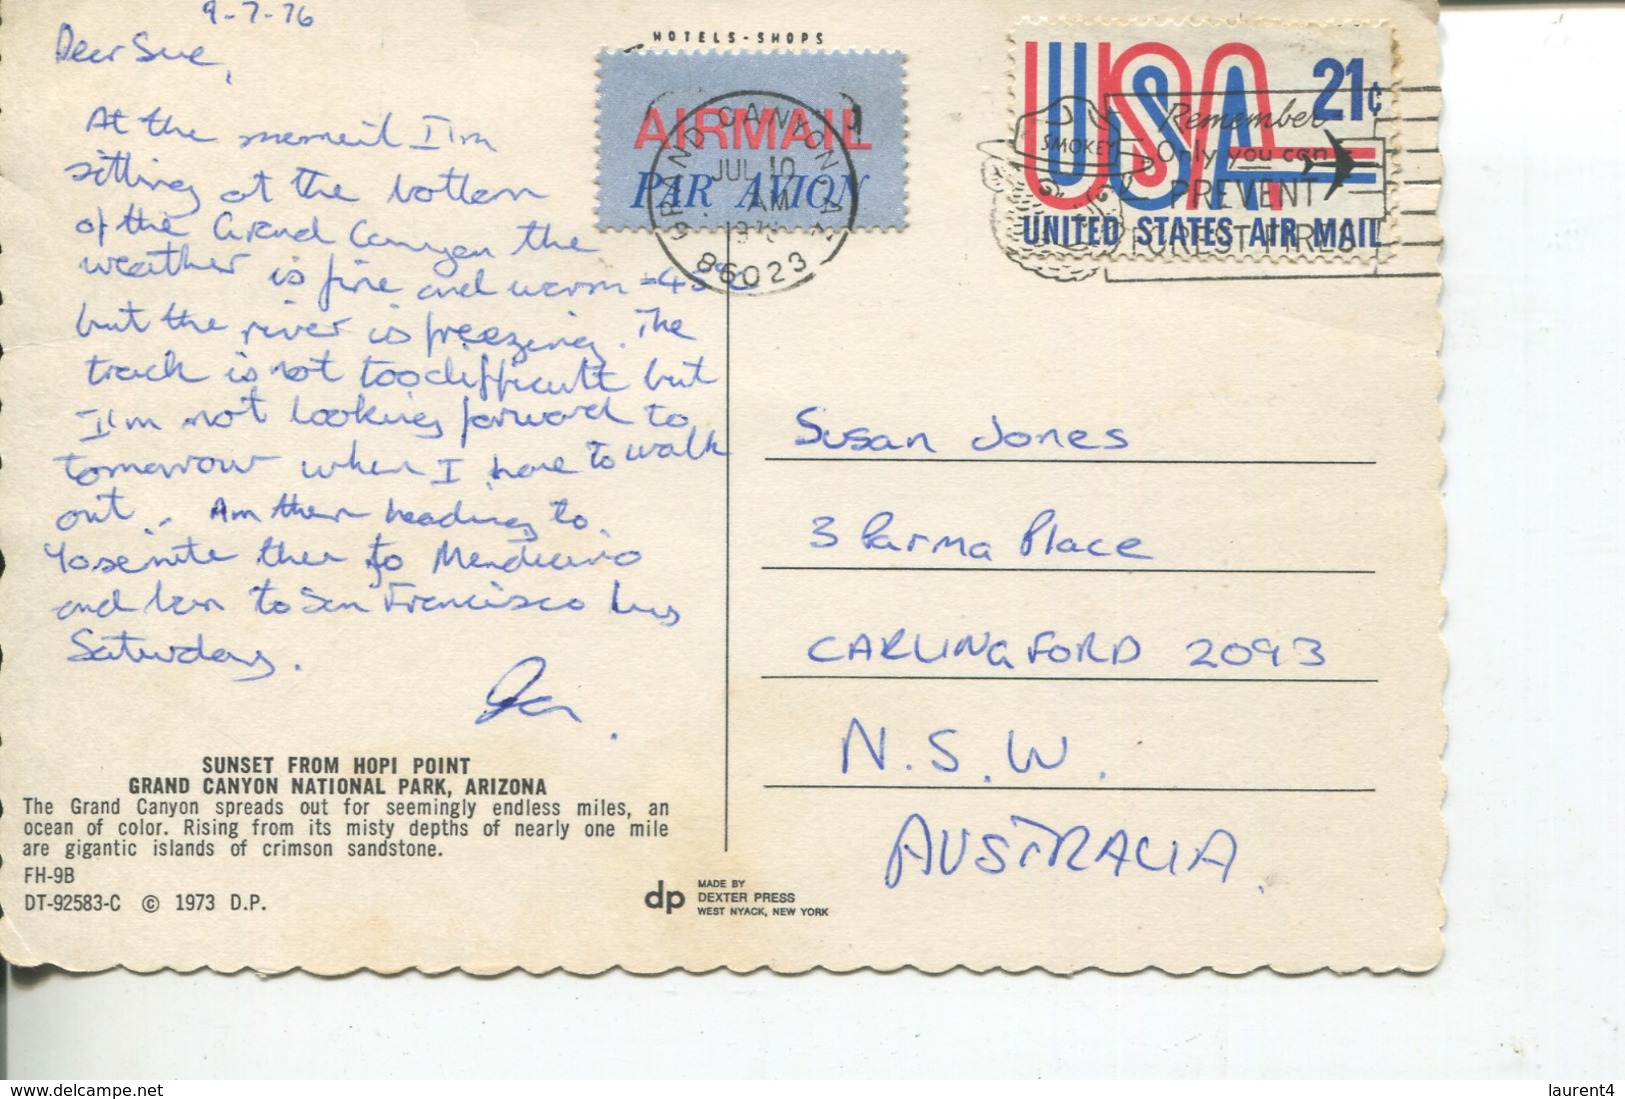 9-7-76
Dear Sue,
At the moment I'm
sitting at the bottom
of the Grand Canyon the
weather is fine and warm =45°C
but the river is freezing. The
track is not too difficult but
I'm not looking forward to
tomorrow when I have to walk
out.. Am then heading to
Yosemite then to Mendicino
and then to San Francisco by
Saturday.
SUNSET FROM HOPI POINT
GRAND CANYON NATIONAL PARK, ARIZONA
The Grand Canyon spreads out for seemingly endless miles, an
ocean of color. Rising from its misty depths of nearly one mile
are gigantic islands of crimson sandstone.
FH-9B
DT-92583-C © 1973 D.P.
dp
MADE BY
DEXTER PRESS
WEST NYACK, NEW YORK
HOTELS-SHOPS
AIRMAIL
PAR AVION
GRAND CANYON
JUL 10
AM
1976
86023
USA
21¢
UNITED STATES AIR MAIL
SMOKEY
Remember
Only you can
PREVENT
FOREST FIRES
Susan Jones
3 Parma Place
CARLINGFORD 2093
N.S.W.
AUSTRALIA.
delcampe.net
laurent4